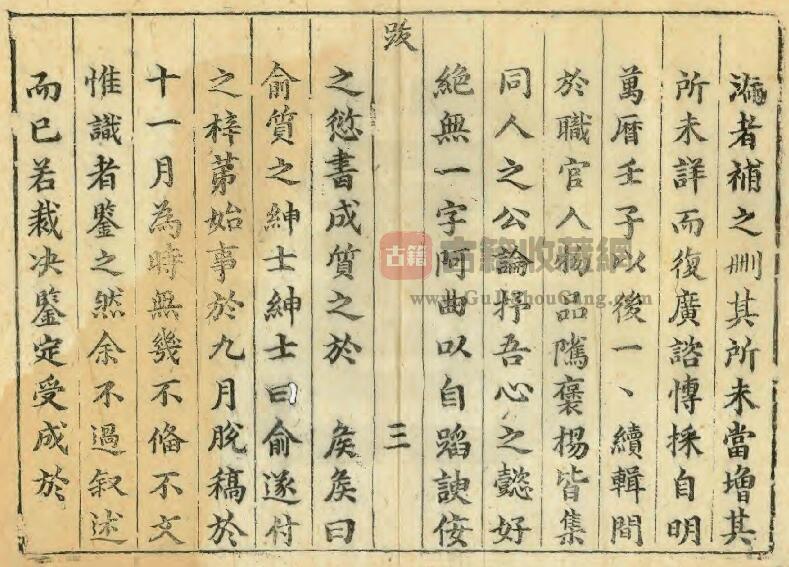 漏者補之刪其所未當增其
所未詳而復廣諮慱採自明
萬曆壬子以後一、續輯間
於職官人物品隲褒楊皆集
同人之公論抒吾心之懿好
絕無一字阿曲以自蹈諛佞
跋
三
之愆書成質之於 矦矦曰
俞質之紳士紳士曰俞遂付
之梓苐始事於九月脫稿於
十一月為時無幾不俻不文
惟識者鑒之然余不過叙述
而已若裁决鑒定受成於
古籍
古籍收藏網
www.GuJiShouCang.com